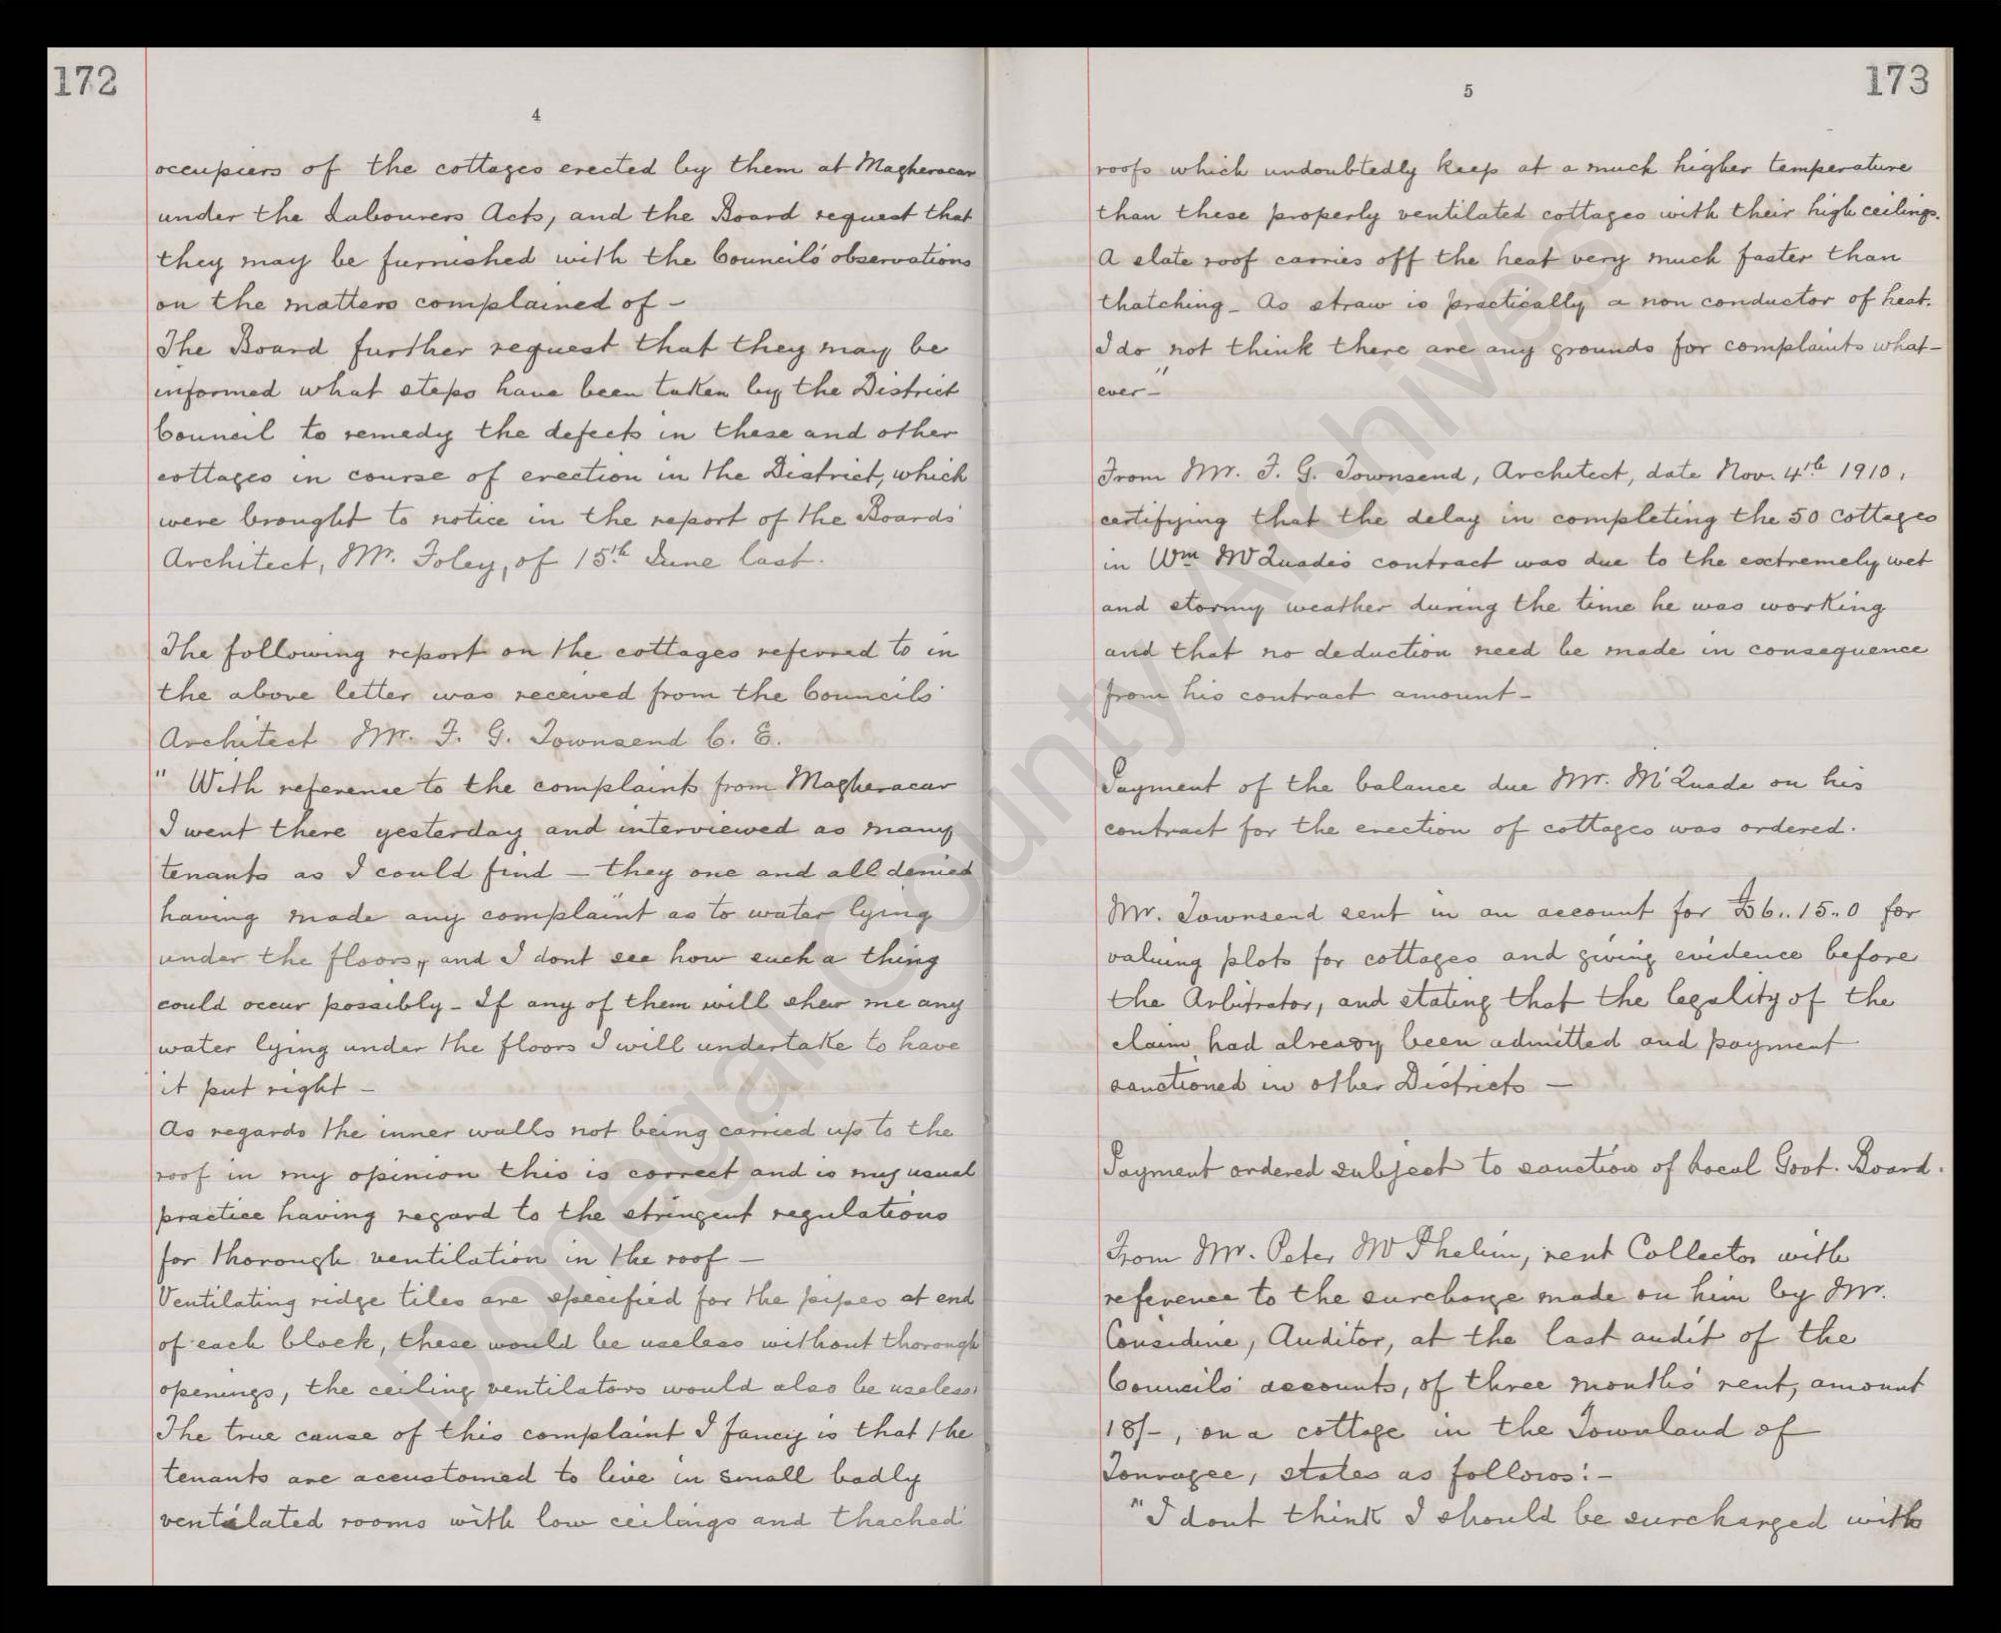 172
4
occupiers of the cottages erected by them at Magheracar
under the Labourers Acts, and the Board request that
they may be furnished with the Council's observations
on the matters complained of –
The Board further request that they may be
informed what steps have been taken by the District
Council to remedy the defects in these and other
cottages in course of erection in the District, which
were brought to notice in the report of the Boards'
Architect, Mr. Foley, of 15th June last.
The following report on the cottages referred to in
the above letter was received from the Councils'
Architect Mr. F. G. Townsend C. E.
" With reference to the complaints from Magheracar
I went there yesterday and interviewed as many
tenants as I could find – they one and all denied
having made any complaint as to water lying
under the floors, and I dont see how such a thing
could occur possibly – If any of them will shew me any
water lying under the floors I will undertake to have
it put right –
As regards the inner walls not being carried up to the
roof in my opinion this is correct and is my usual
practice having regard to the stringent regulations
for thorough ventilation in the roof –
Ventilating ridge tiles are specified for the pipes at end
of each block, these would be useless without thorough
openings, the ceiling ventilators would also be useless.
The true cause of this complaint I fancy is that the
tenants are accustomed to live in small badly
ventilated rooms with low ceilings and thached
173
5
roofs which undoubtedly keep at a much higher temperature
than these properly ventilated cottages with their high ceilings.
A slate roof carries off the heat very much faster than
thatching – As straw is practically a non conductor of heat.
I do not think there are any grounds for complaints what–
ever –"
From Mr. F. G. Townsend, Architect, date Nov. 4th 1910,
certifying that the delay in completing the 50 cottages
in Wm McQuade's contract was due to the extremely wet
and stormy weather during the time he was working
and that no deduction need be made in consequence
from his contract amount –
Payment of the balance due Mr. McQuade on his
contract for the erection of cottages was ordered.
Mr. Townsend sent in an account for £6..15..0 for
valuing plots for cottages and giving evidence before
the Arbitrator, and stating that the legality of the
claim, had already been admitted and payment
sanctioned in other Districts –
Payment ordered subject to sanction of Local Govt. Board.
From Mr. Peter McPhelim, rent Collector with
reference to the surcharge made on him by Mr.
Considine, Auditor, at the last audit of the
Councils' accounts, of three months' rent, amount
18/–, on a cottage in the Townland of
Tonragee, states as follows:–
"I dont think I should be surcharged with
Donegal County Archives